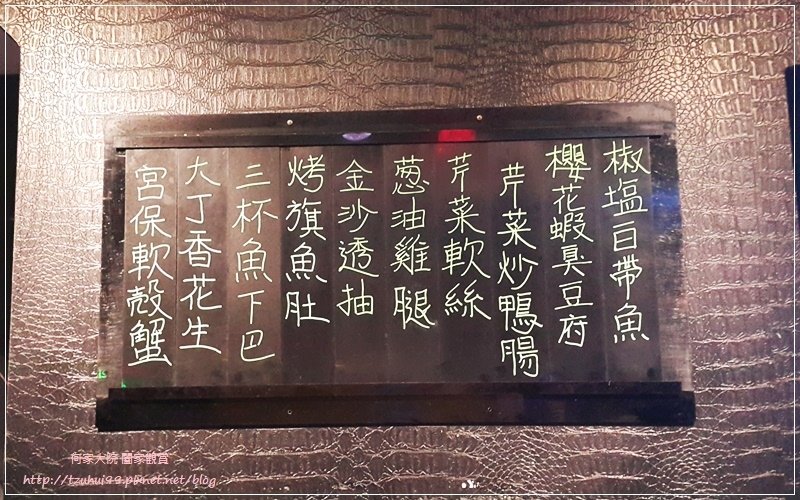 椒塩白帶魚
櫻花蝦臭豆府
芹菜炒鴨腸
芹菜軟絲
蔥油雞腿
金沙透抽
烤旗魚肚
三杯魚下巴
大丁香花生
宮保軟殼蟹
何家大院 闔家觀賞
http://tzuhui99.pixnet.net/blog